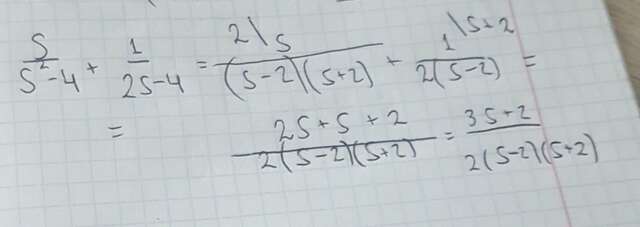 S/(S²-4) + 1/(2S-4) = 2\S/((S-2)(S+2)) + 1\S+2/(2(S-2)) =
= (2S+S+2)/(2(S-2)(S+2)) = (3S+2)/(2(S-2)(S+2))